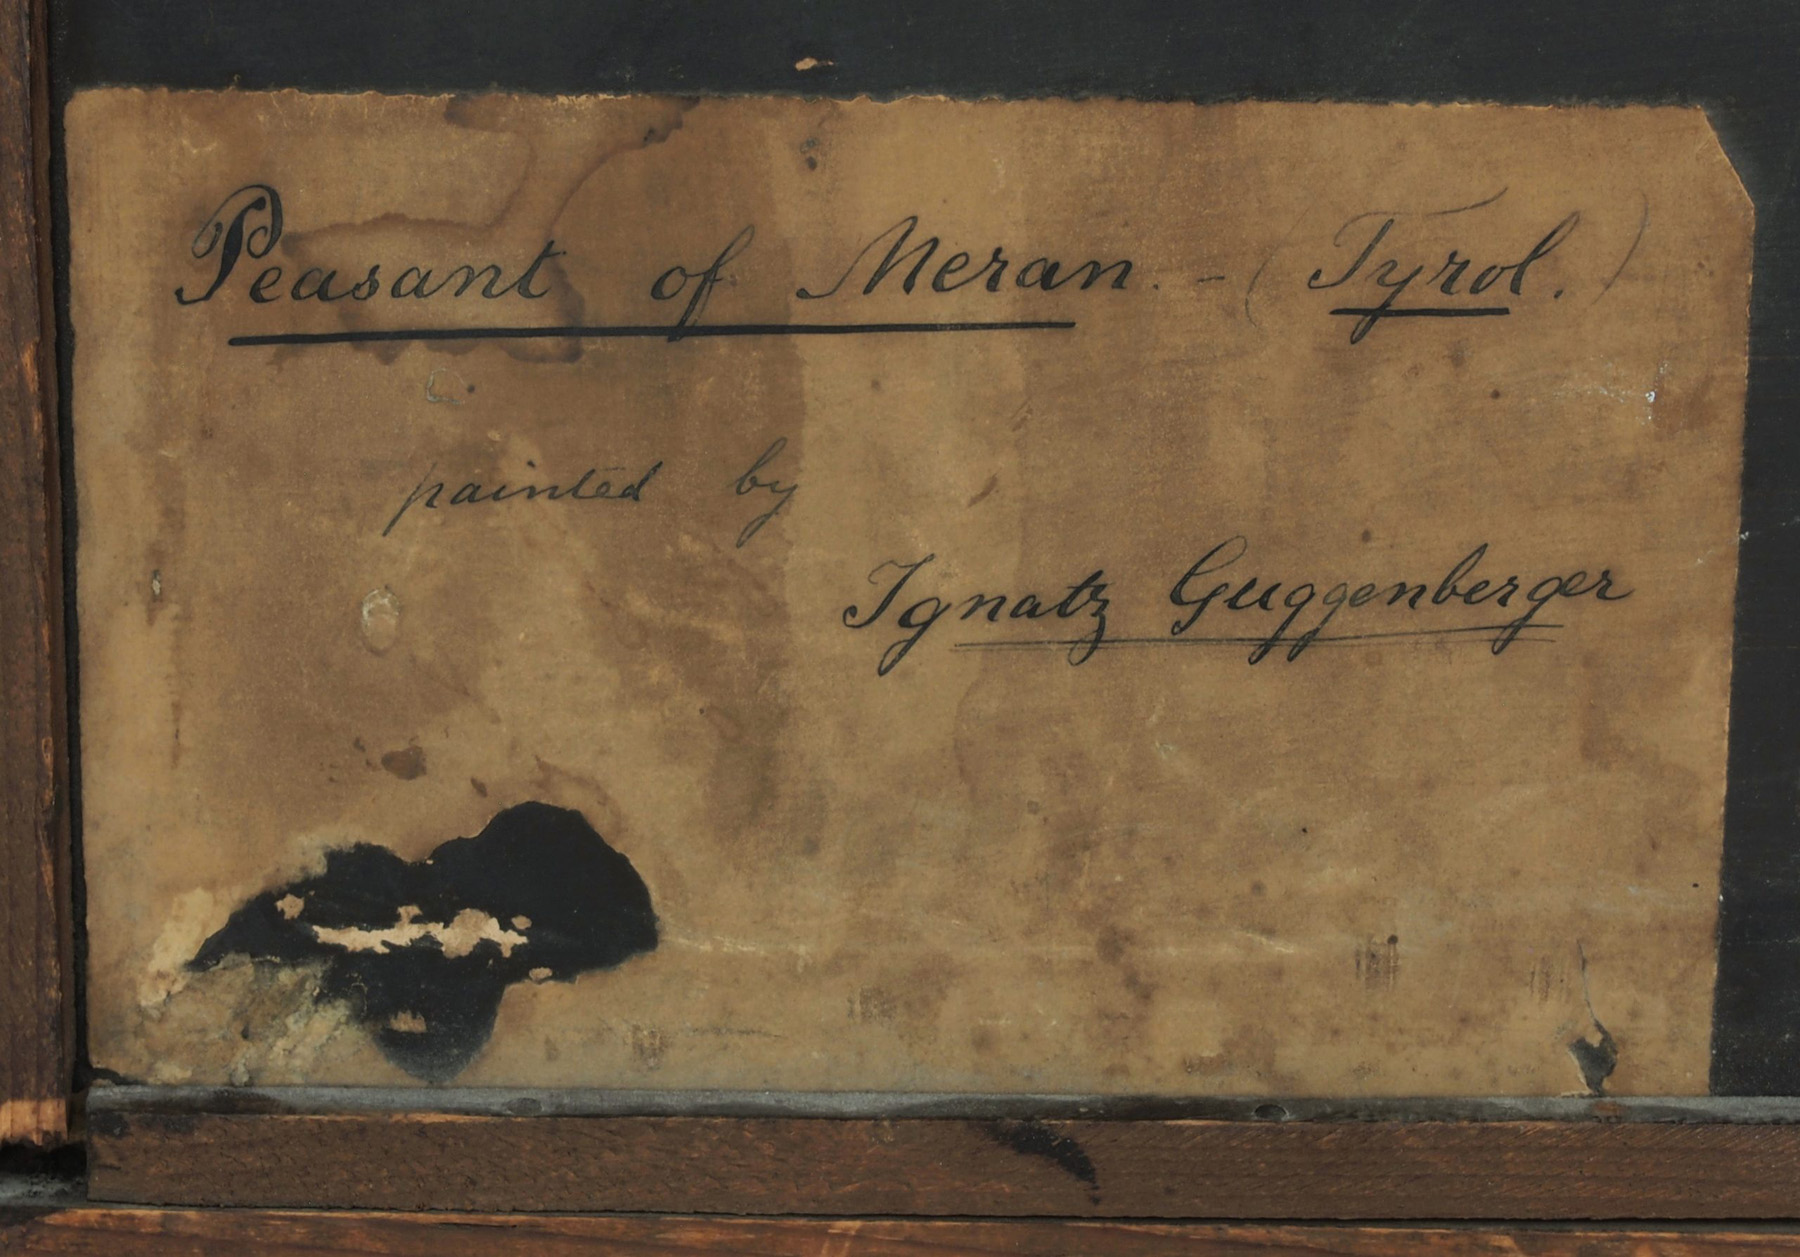 Peasant of Meran. - (Tyrol.)
painted by
Ignatz Guggenberger